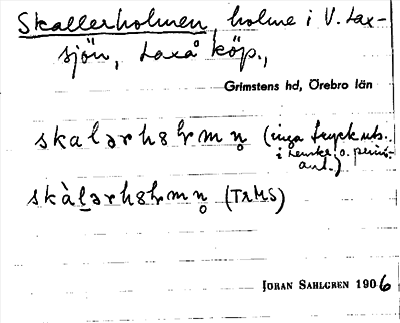 Skallerholmen, holme i V. Lax-
sjön, Laxå köp.,
Grimstens hd, Örebro län
skalərhꝏlrmn̥ (inga tryckuts.
i Lencke. o. primär-
ant.)
skàlərhꝏlrmn̥ (TrMS)
JOHAN SAHLGREN 1906